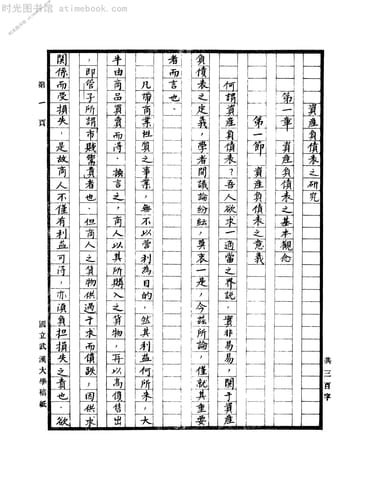 时光图书馆 - atimebook.com
資產負債表之研究
第一章 資產負債表之基本觀念
第一節 資產負債表之意義
何謂資產負債表?吾人欲求一適當之界說,實非易易,關于資產
負債表之定義,學者間議論紛紜,莫衷一是,今茲所論,僅就其重要
者而言也.
凡帶商業性質之事業,無不以營利為目的.然其利益何所來,大
半由商品買賣而得.換言之,商人以其所購入之貨物,再以高價售出
,即管子所謂市賤鬻貴者也.但商人之貨物供過于求而價跌,因供求
關係而受損失.是故商人不僅有利益可得,亦須負担損失之責也.欲
第一頁
國立武漢大學稿紙
共三百字